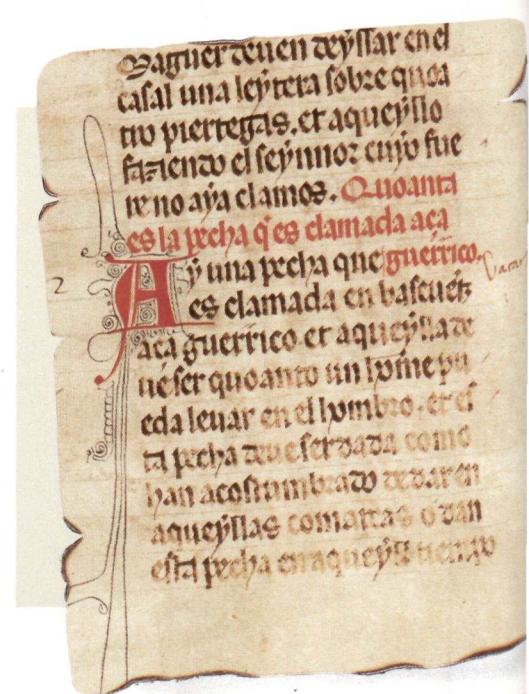 Maguer deven deyssar en el
casal una leytera sobre quoa
tro piertegas. et aqueyllo
faziendo el seynnor cuyo fue
re no aya clamos. Quoanta
es la pecha q̄ es clamada aca
Ay una pecha que guerrico.
es clamada en bascuēz
aca guerrico et aqueylla de
ue ser quoanto un hom̄e pu
eda leuar en el hombro. et es
ta pecha deue ser dada como
han acostumbrado de dar en
aqueyllas comarcas o dan
esta pecha en aqueyll tiempo
2